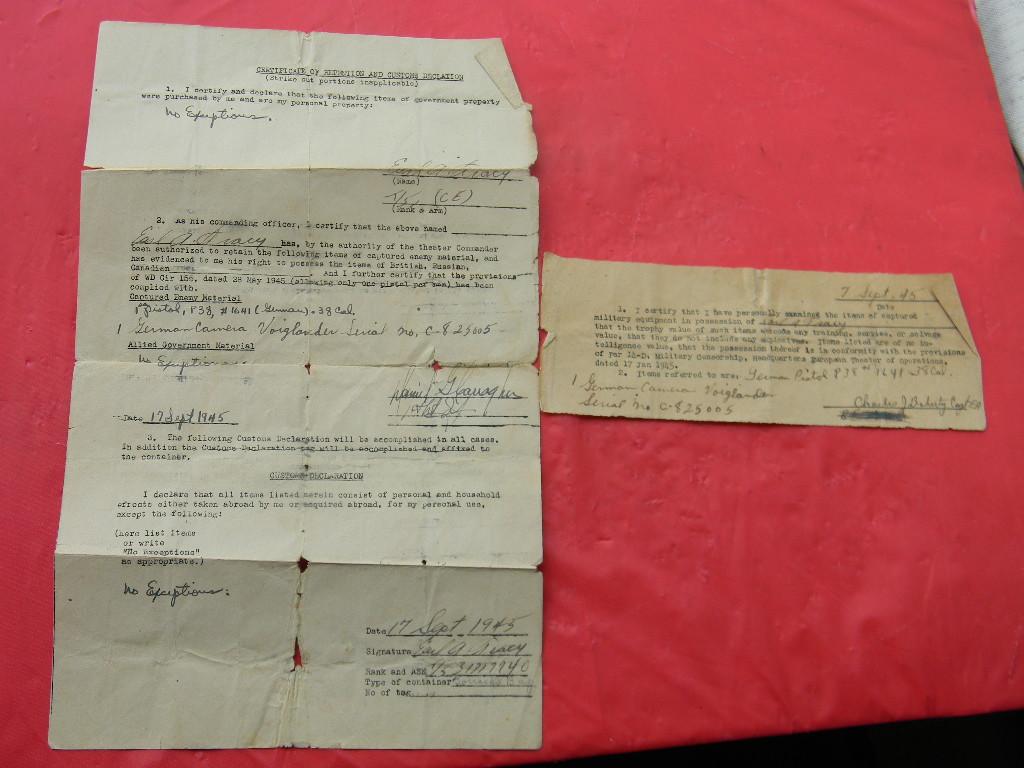 CERTIFICATE OF RETENTION AND CUSTOMS DECLATION
(Strike out portions inapplicable)
1. I certify and declare that the following items of government property
were purchased by me and are my personal property:
No Exceptions.
Earl A. Tracy
(Name)
T/5, (CE)
(Rank & Arm)
2. As his commanding officer, I certify that the above named
Earl A. Tracy has, by the authority of the theater Commander
been authorized to retain the following items of captured enemy material, and
has evidenced to me his right to possess the items of British, Russian,
Canadian And I further certify that the provisions
of WD Cir 155, dated 28 May 1945 (allowing only one pistol per man) has been
complied with.
Captured Enemy Material
1 Pistol, P38, #1641 (German) .38 Cal.
1 German Camera Voiglander Serial no, C-825005
Allied Government Material
No Exceptions.
Date 17 Sept 1945
3. The following Customs Declaration will be accomplished in all cases.
In addition the Customs Declaration tag will be accomplished and affixed to
the container.
CUSTOMS DECLARATION
I declare that all items listed herein consist of personal and household
effects either taken abroad by me or acquired abroad, for my personal use,
except the following:
(here list items
or write
"No Exceptions"
as appropriate.)
No Exceptions:
Date 17 Sept 1945
Signature Earl A. Tracy
Rank and ASN T/5
Type of container
No of tag
7 Sept. 45
Date
1. I certify that I have personally examined the items of captured
military equipment in possession of Earl A. Tracy
that the trophy value of such items exceeds any training, service, or salvage
value, that they do not include any explosives. Items listed are of no in-
telligence value, that the possession thereof is in conformity with the provisions
of Par 18-D, Military Censorship, Headquarters European Theater of operations,
dated 17 Jan 1945.
2. Items referred to are: German Pistol P38 # 1641 .38 Cal.
1 German Camera Voiglander
Serial No C-825005
Charles J Doherty Capt